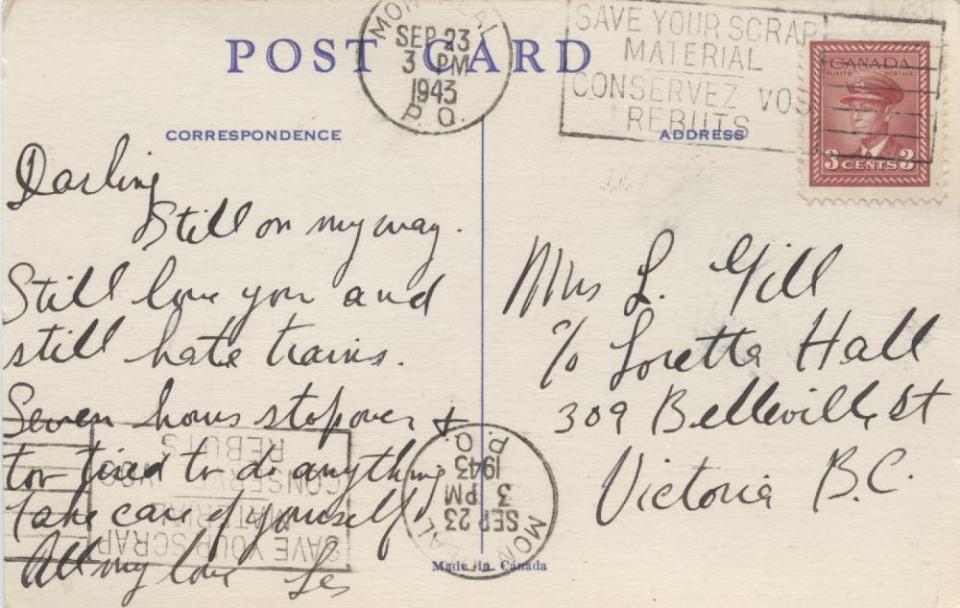 POST CARD
MONTREAL
SEP 23
3 PM
1943
P.Q.
SAVE YOUR SCRAP
MATERIAL
CONSERVEZ VOS
REBUTS
CANADA
POSTES POSTAGE
3 CENTS 3
CORRESPONDENCE
ADDRESS
Darling
Still on my way.
Still love you and
still hate trains.
Seven hours stopover &
too tired to do anything
Take care of yourself
All my love Les
Mrs L. Gill
c/o Loretta Hall
309 Belleville St
Victoria B.C.
MONTREAL
SEP 23
3 PM
1943
P.Q.
SAVE YOUR SCRAP
MATERIAL
CONSERVEZ VOS
REBUTS
Made in Canada